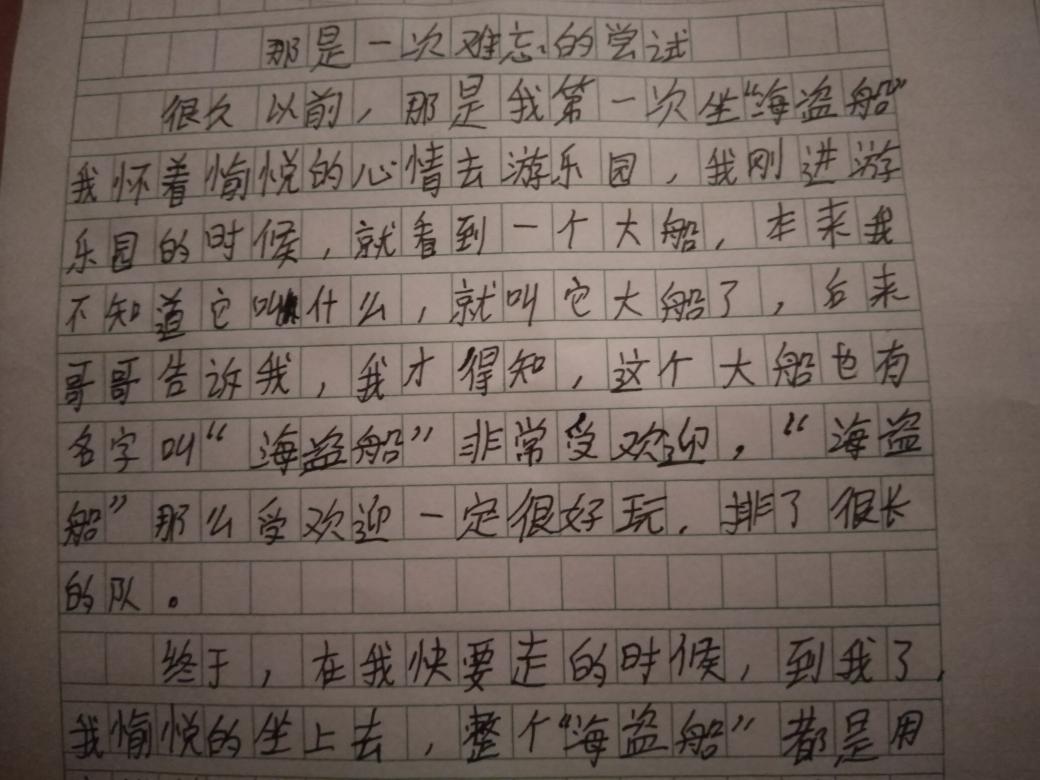 那是一次难忘的尝试
很久以前，那是我第一次坐“海盗船”
我怀着愉悦的心情去游乐园，我刚进游
乐园的时候，就看到一个大船，本来我
不知道它叫什么，就叫它大船了，后来
哥哥告诉我，我才得知，这个大船也有
名字叫“海盗船”非常受欢迎，“海盗
船”那么受欢迎一定很好玩，排了很长
的队。
终于，在我快要走的时候，到我了，
我愉悦的坐上去，整个“海盗船”都是用